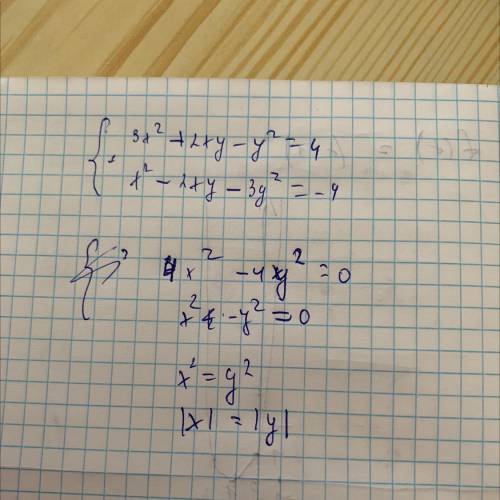 3x² + 2xy - y² = 4
x² - 2xy - 3y² = -4
4x² - 4y² = 0
x² - y² = 0
x² = y²
|x| = |y|